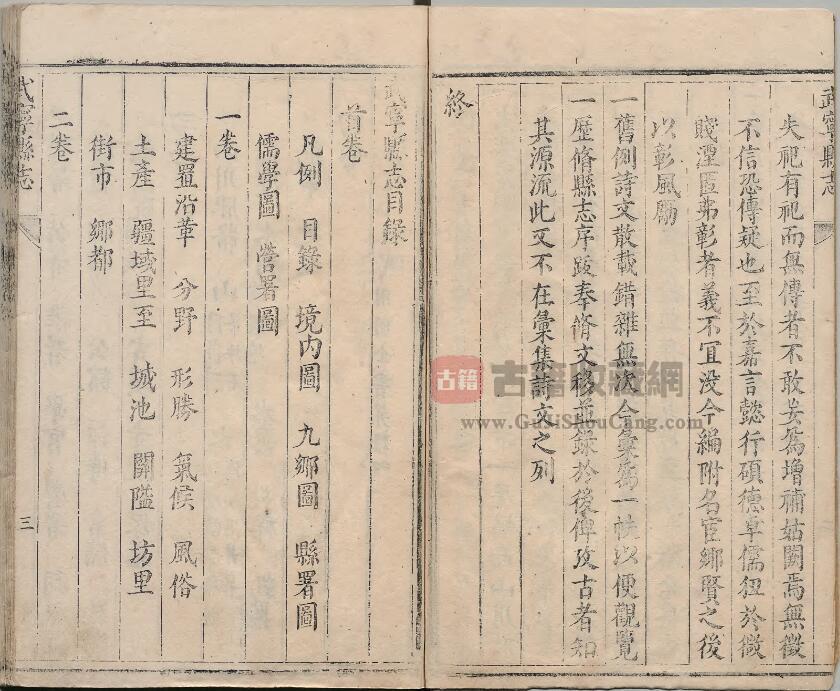 武寧縣志
失祀有祀而無傳者不敢妄為增補姑闕焉無徵
不信恐傳疑也至於嘉言懿行碩德卓儒狃於微
賤湮匿弗彰者義不冝没今編附名宦鄉賢之後
以彰風勵
一舊例詩文散載錯雜無次今彙為一帙以便觀覽
一歷脩縣志序跋奉脩文移並錄於後俾攷古者知
其源流此又不在彙集詩文之列
終
武寧縣志目錄
首卷
凡例 目錄 境内圖 九鄉圖 縣署圖
儒學圖 營署圖
一卷
建置沿革 分野 形勝 氣候 風俗
土產 疆域里至 城池 關隘 坊里
街市 鄉都
二卷
武寧縣志
三
古籍 古籍收藏網
www.GuJiShouCang.com